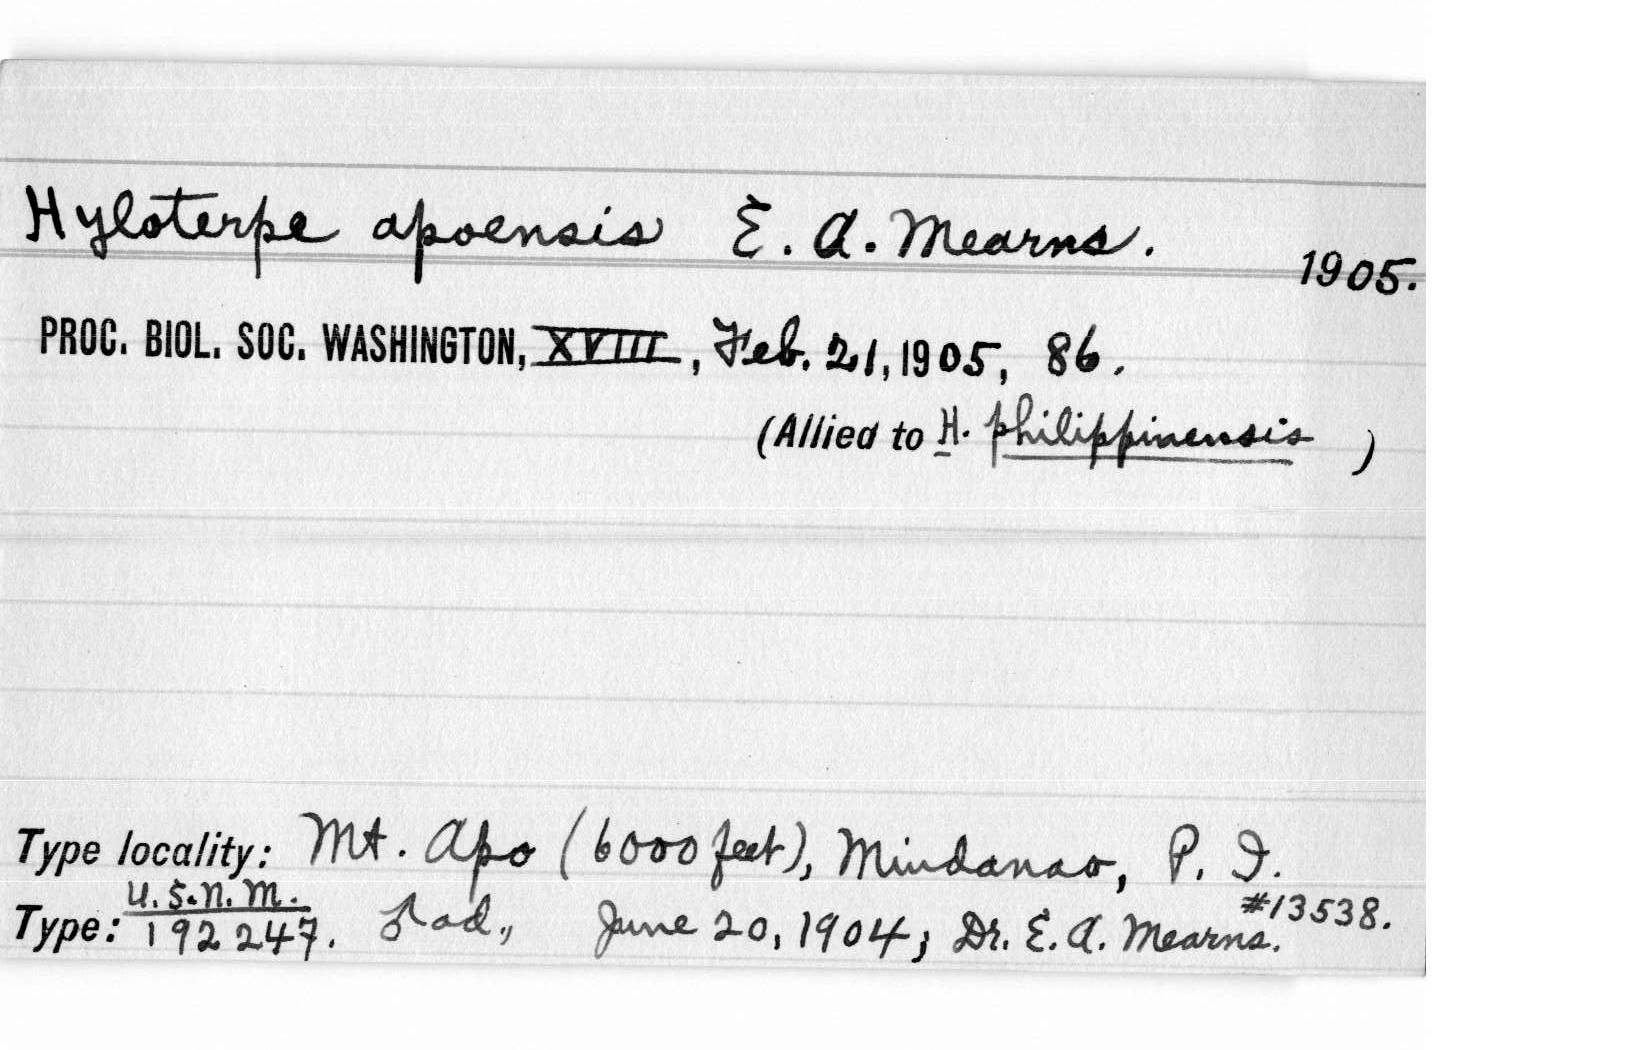 Hyloterpe apoensis E. A. Mearns.
1905.
PROC. BIOL. SOC. WASHINGTON, XVIII, Feb. 21, 1905, 86.
(Allied to H. philippinensis )
Type locality: Mt. Apo (6000 feet), Mindanao, P. I.
U.S.N.M. #13538.
Type: 192247. ad., June 20, 1904; Dr. E. A. Mearns.